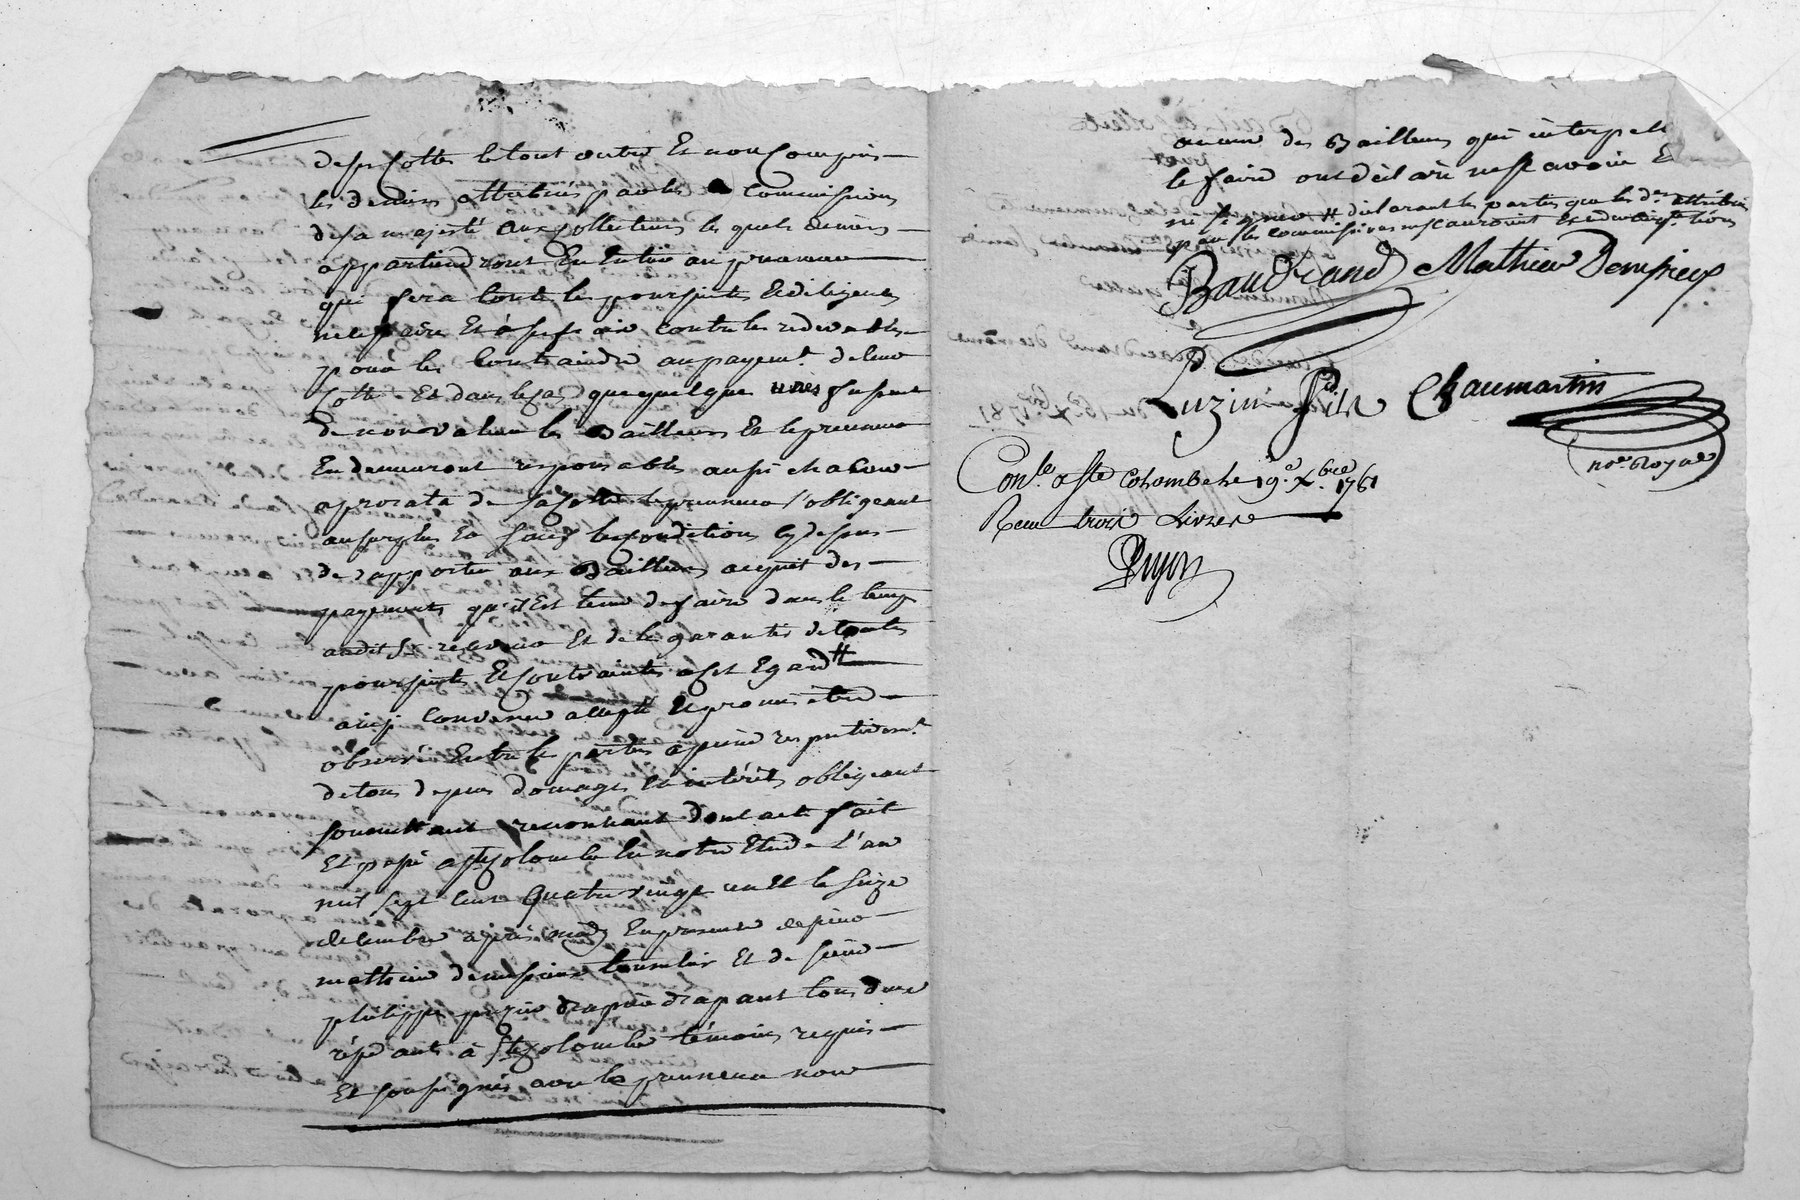 desd Cottes le tout outre Et non Compris
les deniers attribués par les commissions
de sa majesté aux Collecteurs les quels deniers
appartiendront En Entier au preneur
qui fera toute les poursuites Et diligences
necessaires Et à ses frais contre les redevables
pour les Contraindre au payemt. de leur
Cotte Et dans le Cas que quelque unes fussent
de non valeur les Bailleurs Et le preneur
En demeuront responsables aussi chacun
a prorata de sa Cotte le preneur s'obligeant
au surplus Et sous les Conditions cy dessus
de rapporter aux Bailleurs acquit des
payements qu'il Est tenu de faire dans le temps
audit Sr receveur Et de les garantir de toutes
poursuites Et Contraintes a cet Egard #
ainsi Convenu accepté Et promis être
observé Entre les parties à peine respectivemt.
de tous depens domages Et intérêts obligeant
soumettant renonçant dont acte fait
Et passé a Ste Colombe En notre Etude L'an
mil sept cent quatre vingt un Et le seize
decembre après midy En presence de sieur
mathieu dempieux tourneur Et de sieur
philippe puzin drapier drapant tous deux
résidants à Ste Colombe témoins requis
Et soussignés avec le preneur non
aucun des Bailleurs qui interpelés
le faire ont déclaré ne savoir Et
ne signer # déclarant les parties que les drs attribués
par les commissions
Baudrand Mathieu Dempieux
Puzin fils Chaumartin
nore. Royal
Conle. a Ste Colombe le 19e. Xbre 1781
Recu trois Livres
Guyon